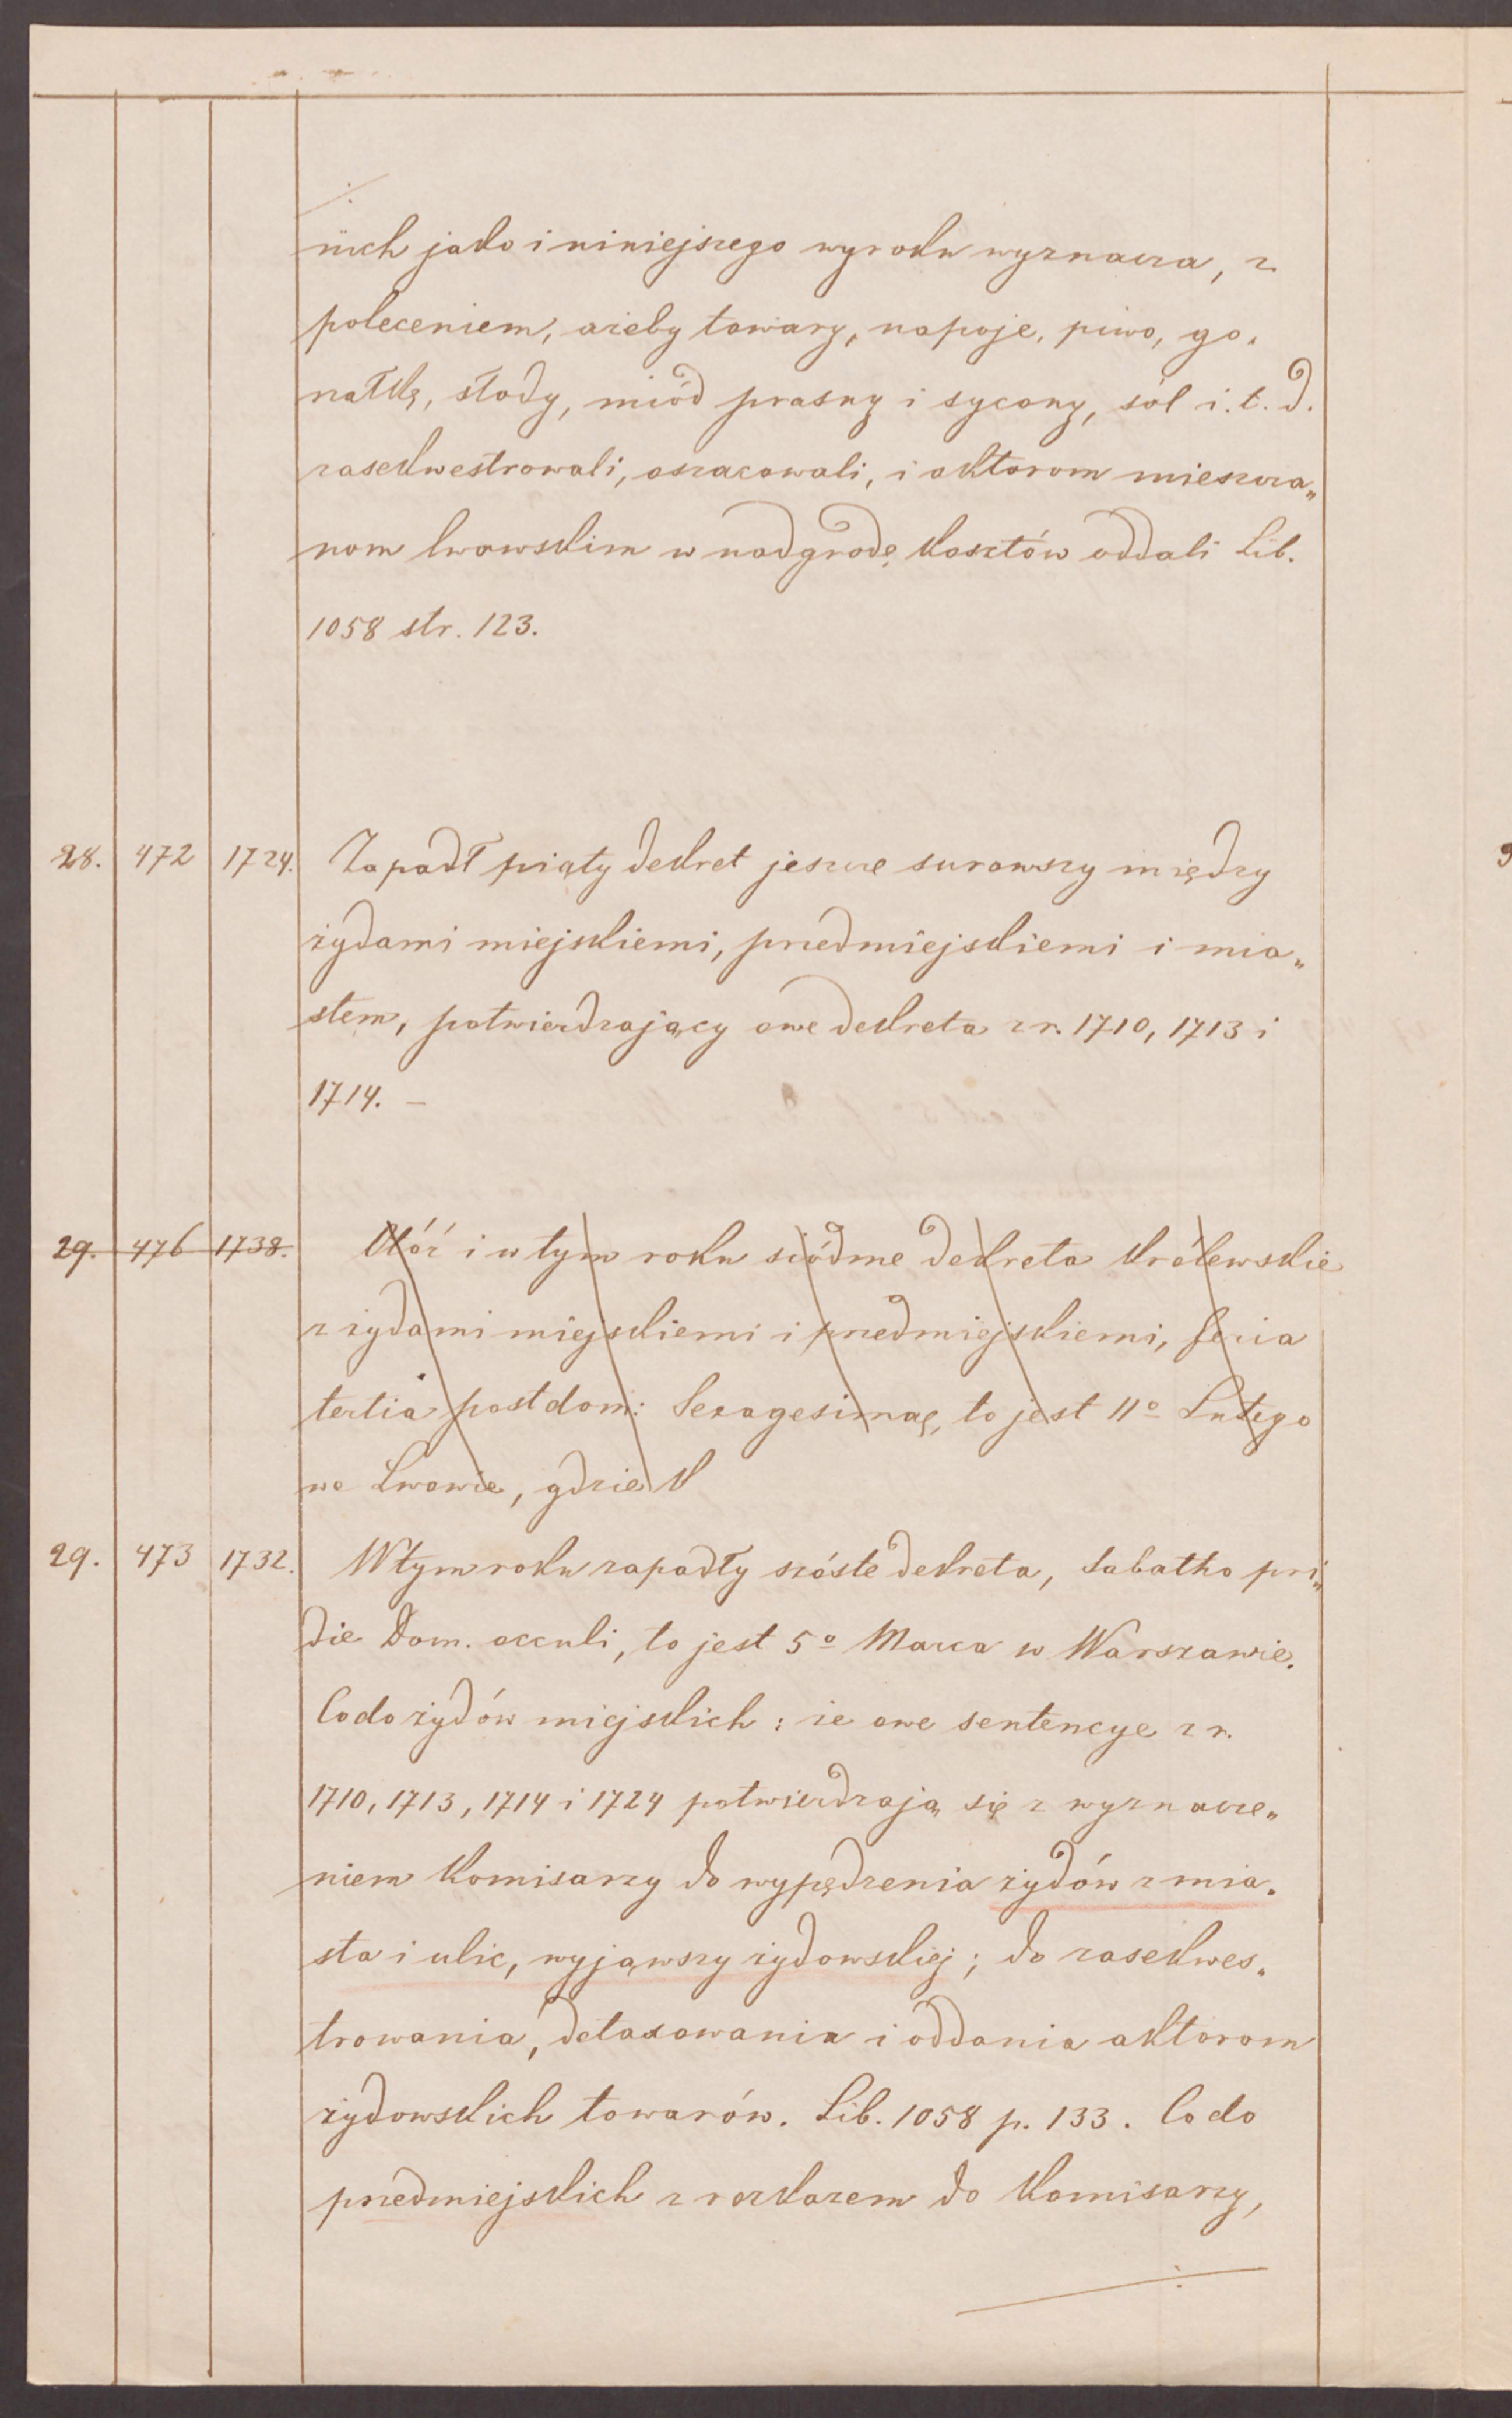 nich jako i niniejszego wyroku wyznacza, z
poleceniem, ażeby towary, napoje, piwo, go„
rałkę, słody, miód praśny i sycony, sól i. t. d.
zasekwestrowali, oszacowali, i aktorom mieszcza„
nom lwowskim w nadgrodę kosztów oddali Lib.
1058 str. 123.
28. 472 1724. Zapadł piąty dekret jeszcze surowszy między
żydami miejskiemi, przedmiejskiemi i mia„
stem, potwierdzający owe dekreta z r. 1710, 1713 i
1714. –
29. 476 1738. Któż i w tym roku siódme dekreta królewskie
z żydami miejskiemi i przedmiejskiemi, feria
tertia post dom: Sexagesimae, to jest 11º Lutego
we Lwowie, gdzie k
29. 473 1732. W tym roku zapadły szóste dekreta, Sabatho pri„
die Dom. occuli, to jest 5º Marca w Warszawie.
Co do żydów miejskich: że owe sentencye z r.
1710, 1713, 1714 i 1724 potwierdzają się z wyznacze„
niem Komisarzy do wypędzenia żydów z mia„
sta i ulic, wyjąwszy żydowskiej; do zasekwes„
trowania, detaxowania i oddania aktorom
żydowskich towarów. Lib. 1058 p. 133. Co do
przedmiejskich z rozkazem do Komisarzy,